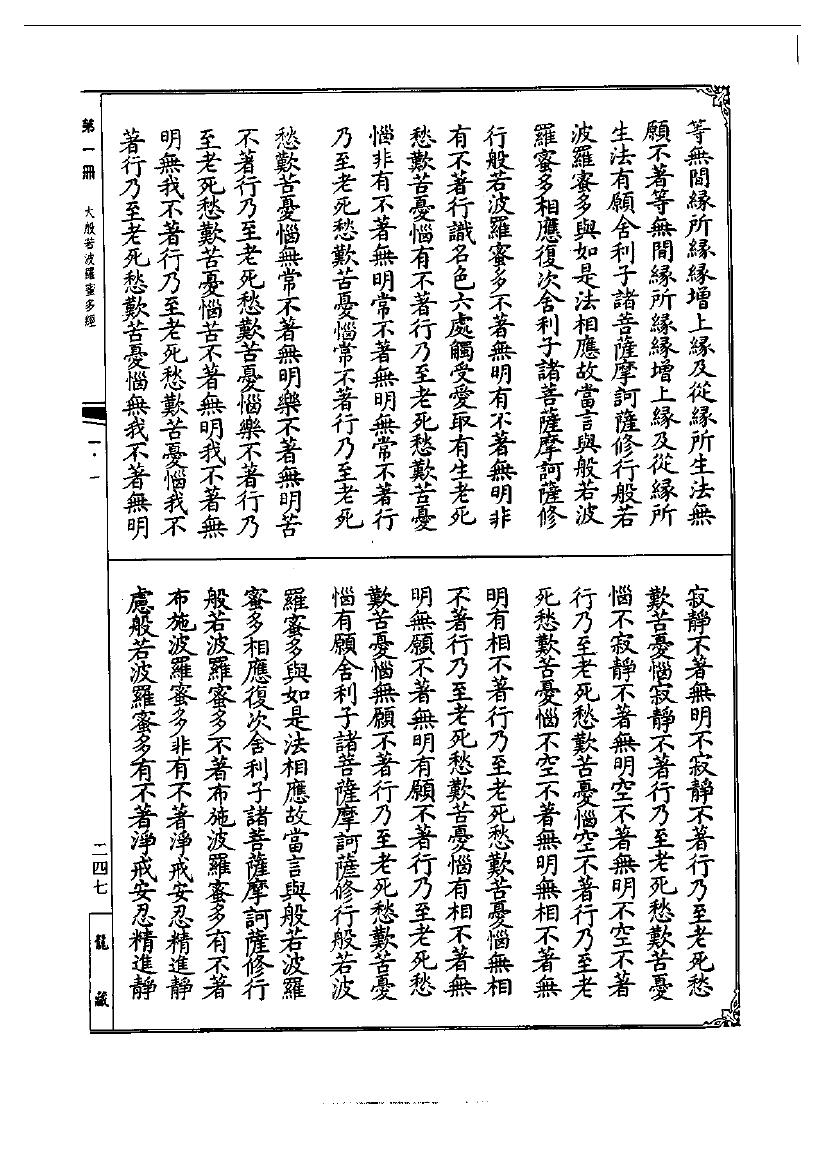 等無間縁所縁縁增上縁及從縁所生法無
願不著等無間縁所縁縁增上縁及從縁所
生法有願舍利子諸菩薩摩訶薩修行般若
波羅蜜多與如是法相應故當言與般若波
羅蜜多相應復次舍利子諸菩薩摩訶薩修
行般若波羅蜜多不著無明有不著無明非
有不著行識名色六處觸受愛取有生老死
愁歎苦憂惱有不著行乃至老死愁歎苦憂
惱非有不著無明常不著無明無常不著行
乃至老死愁歎苦憂惱常不著行乃至老死
愁歎苦憂惱無常不著無明樂不著無明苦
不著行乃至老死愁歎苦憂惱樂不著行乃
至老死愁歎苦憂惱苦不著無明我不著無
明無我不著行乃至老死愁歎苦憂惱我不
著行乃至老死愁歎苦憂惱無我不著無明
寂靜不著無明不寂靜不著行乃至老死愁
歎苦憂惱寂靜不著行乃至老死愁歎苦憂
惱不寂靜不著無明空不著無明不空不著
行乃至老死愁歎苦憂惱空不著行乃至老
死愁歎苦憂惱不空不著無明無相不著無
明有相不著行乃至老死愁歎苦憂惱無相
不著行乃至老死愁歎苦憂惱有相不著無
明無願不著無明有願不著行乃至老死愁
歎苦憂惱無願不著行乃至老死愁歎苦憂
惱有願舍利子諸菩薩摩訶薩修行般若波
羅蜜多與如是法相應故當言與般若波羅
蜜多相應復次舍利子諸菩薩摩訶薩修行
般若波羅蜜多不著布施波羅蜜多有不著
布施波羅蜜多非有不著淨戒安忍精進靜
慮般若波羅蜜多有不著淨戒安忍精進靜
第一冊 大般若波羅蜜多經
一·一
二四七
龍藏